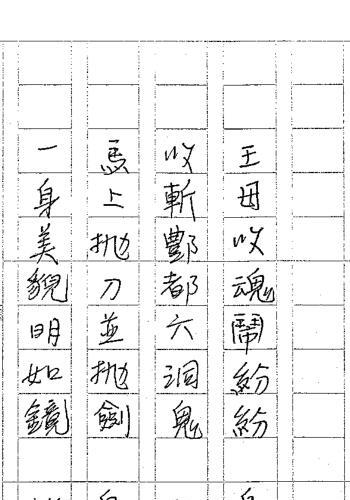 王母收魂鬧紛紛
收斬酆都六洞鬼
馬上拋刀並拋劍
一身美貌明如鏡